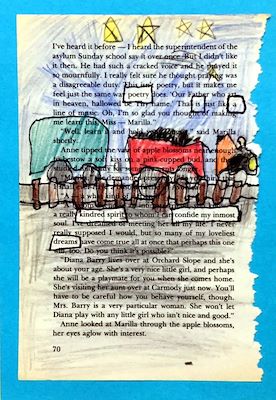 I've heard it before — I heard the superintendent of the
asylum Sunday school say it over once. But I didn't like
it then. He had such a cracked voice and he prayed it
so mournfully. I really felt sure he thought praying was
a disagreeable duty. This isn't poetry, but it makes me
feel just the same way poetry does. 'Our Father who art
in heaven, hallowed be thy name.' That is just like a
line of music. Oh, I'm so glad you thought of making
me learn this, Miss — Marilla."
"Well, learn it and hold your tongue," said Marilla
shortly.
Anne tipped the vase of apple blossoms near enough to
bestow a soft kiss on a pink-cupped bud,
a really kindred spirit to whom I can confide my inmost
soul. I've dreamed of meeting her all my life. I never
really supposed I would, but so many of my loveliest
dreams have come true all at once that perhaps this one
will, too. Do you think it's possible?"
"Diana Barry lives over at Orchard Slope and she's
about your age. She's a very nice little girl, and perhaps
she will be a playmate for you when she comes home.
She's visiting her aunt over at Carmody just now. You'll
have to be careful how you behave yourself, though.
Mrs. Barry is a very particular woman. She won't let
Diana play with any little girl who isn't nice and good."
Anne looked at Marilla through the apple blossoms,
her eyes aglow with interest.
70